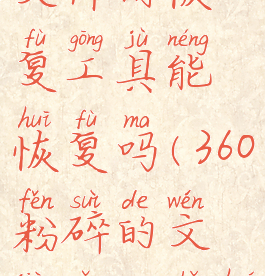 fù gōng jù néng
复工具能
huī fù ma
恢复吗(360
fěn suì de wén
粉碎的文